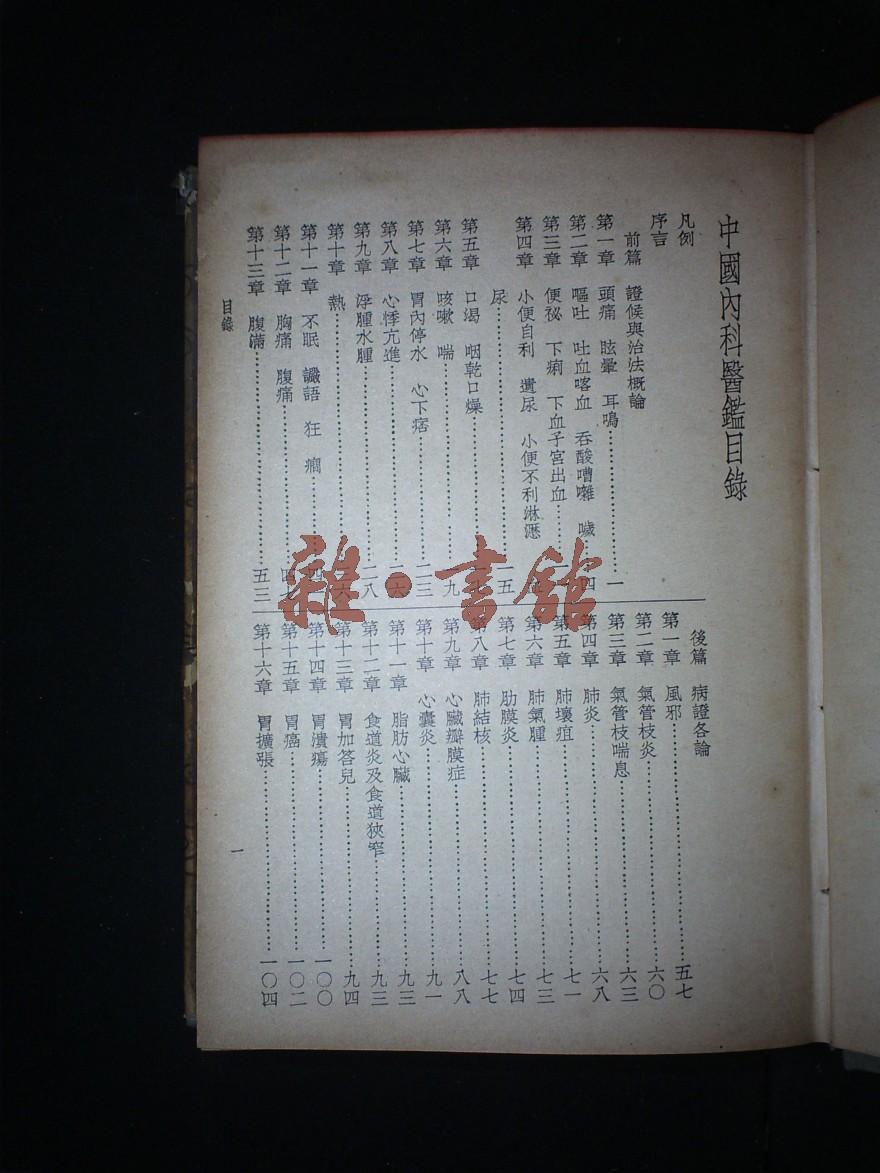 中國內科醫鑑目錄
凡例
序言
前篇 證候與治法概論
第一章 頭痛 眩暈 耳鳴……一
第二章 嘔吐 吐血喀血 吞酸嘈囃 噦……四
第三章 便祕 下痢 下血子宮出血……
第四章 小便自利 遺尿 小便不利淋瀝
尿……五
第五章 口渴 咽乾口燥……
第六章 咳嗽 喘……九
第七章 胃內停水 心下痞……二三
第八章 心悸亢進……二六
第九章 浮腫水腫……二八
第十章 熱……六
第十一章 不眠 讝語 狂 癇……四
第十二章 胸痛 腹痛……四
第十三章 腹滿……五三
後篇 病證各論
第一章 風邪……五七
第二章 氣管枝炎……六〇
第三章 氣管枝喘息……六三
第四章 肺炎……六八
第五章 肺壞疽……七一
第六章 肺氣腫……七三
第七章 肋膜炎……七四
第八章 肺結核……七七
第九章 心臟瓣膜症……八八
第十章 心囊炎……九一
第十一章 脂肪心臟……九三
第十二章 食道炎及食道狹窄……九三
第十三章 胃加答兒……九四
第十四章 胃潰瘍……一〇〇
第十五章 胃癌……一〇二
第十六章 胃擴張……一〇四
目錄
一
雜·書館